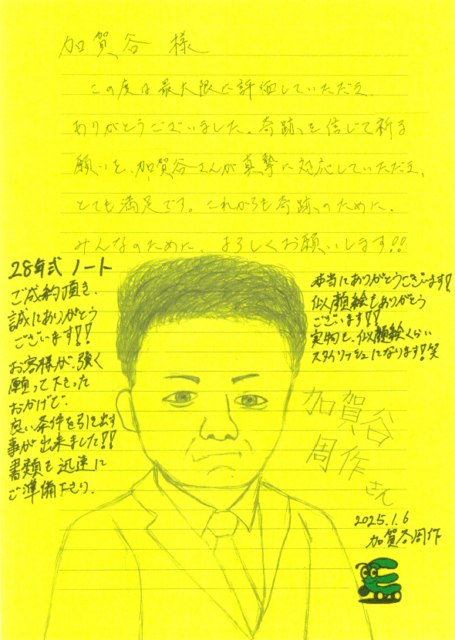 加賀谷 様
この度は最大限に評価していただき、
ありがとうございました。奇跡を信じて祈る
願いを、加賀谷さんが真摯に対応していただき、
とても満足です。これからも奇跡のために、
みんなのために、よろしくお願いします!!
28年式 ノート
ご成約頂き、
誠にありがとう
ございます!!
お客様が、強く
願って下さった
おかげで、
良い条件を引き出す
事が出来ました!!
書類も迅速に
ご準備下さり、
本当にありがとうございます!
似顔絵もありがとう
ございます!!
実物も、似顔絵くらい
スタイリッシュになります!笑
加賀谷
周作さん
2025.1.6
加賀谷周作